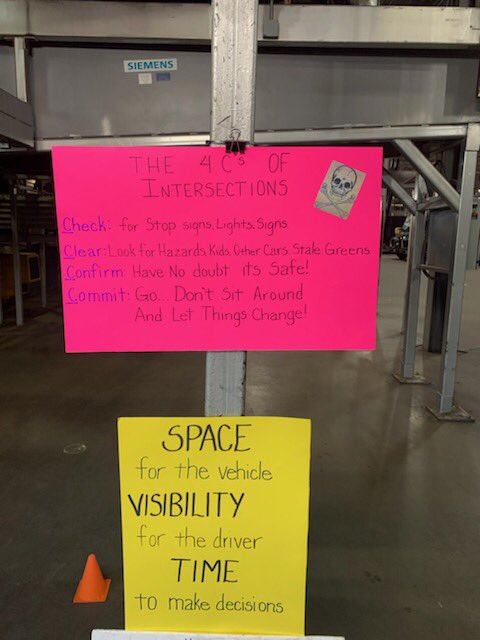 SIEMENS
THE 4 C's OF
INTERSECTIONS
Check: for Stop signs, Lights, Signs
Clear: Look for Hazards, Kids, Other Cars, Stale Greens
Confirm: Have No doubt its Safe!
Commit: Go... Don't Sit Around
And Let Things Change!
SPACE
for the vehicle
VISIBILITY
for the driver
TIME
to make decisions